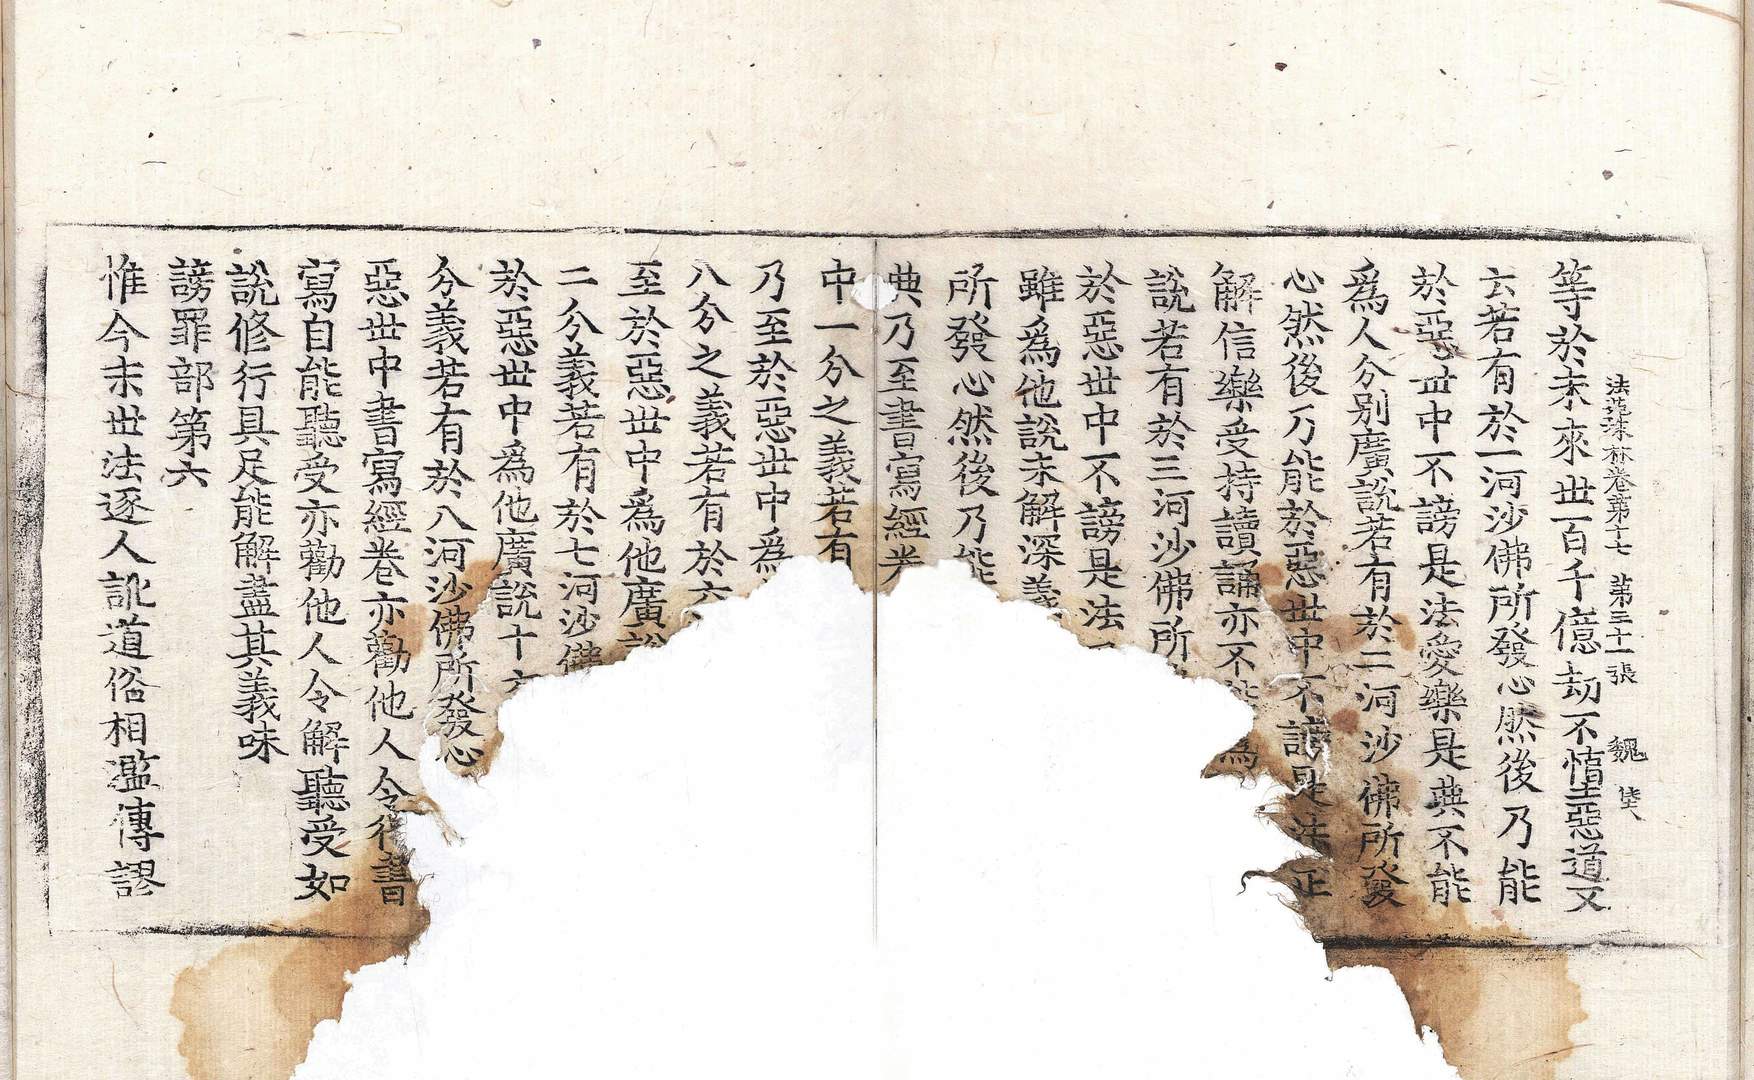 法苑珠林卷第十七 第三十一張 魏
等於未來世百千億劫不墮惡道又
云若有於一河沙佛所發心然後乃能
於惡世中不謗是法愛樂是典不能
爲人分別廣說若有於二河沙佛所發
心然後乃能於惡世中不謗是法正
解信樂受持讀誦亦不能爲
說若有於三河沙佛所
於惡世中不謗是法
雖爲他說未解深義
所發心然後乃能
典乃至書寫經卷
中一分之義若有
乃至於惡世中爲
八分之義若有於六
至於惡世中爲他廣說
二分義若有於七河沙佛
於惡世中爲他廣說十六
分義若有於八河沙佛所發心
惡世中書寫經卷亦勸他人令得書
寫自能聽受亦勸他人令解聽受如
說修行具足能解盡其義味
謗罪部第六
惟今末世法逐人訛道俗相濫傳謬